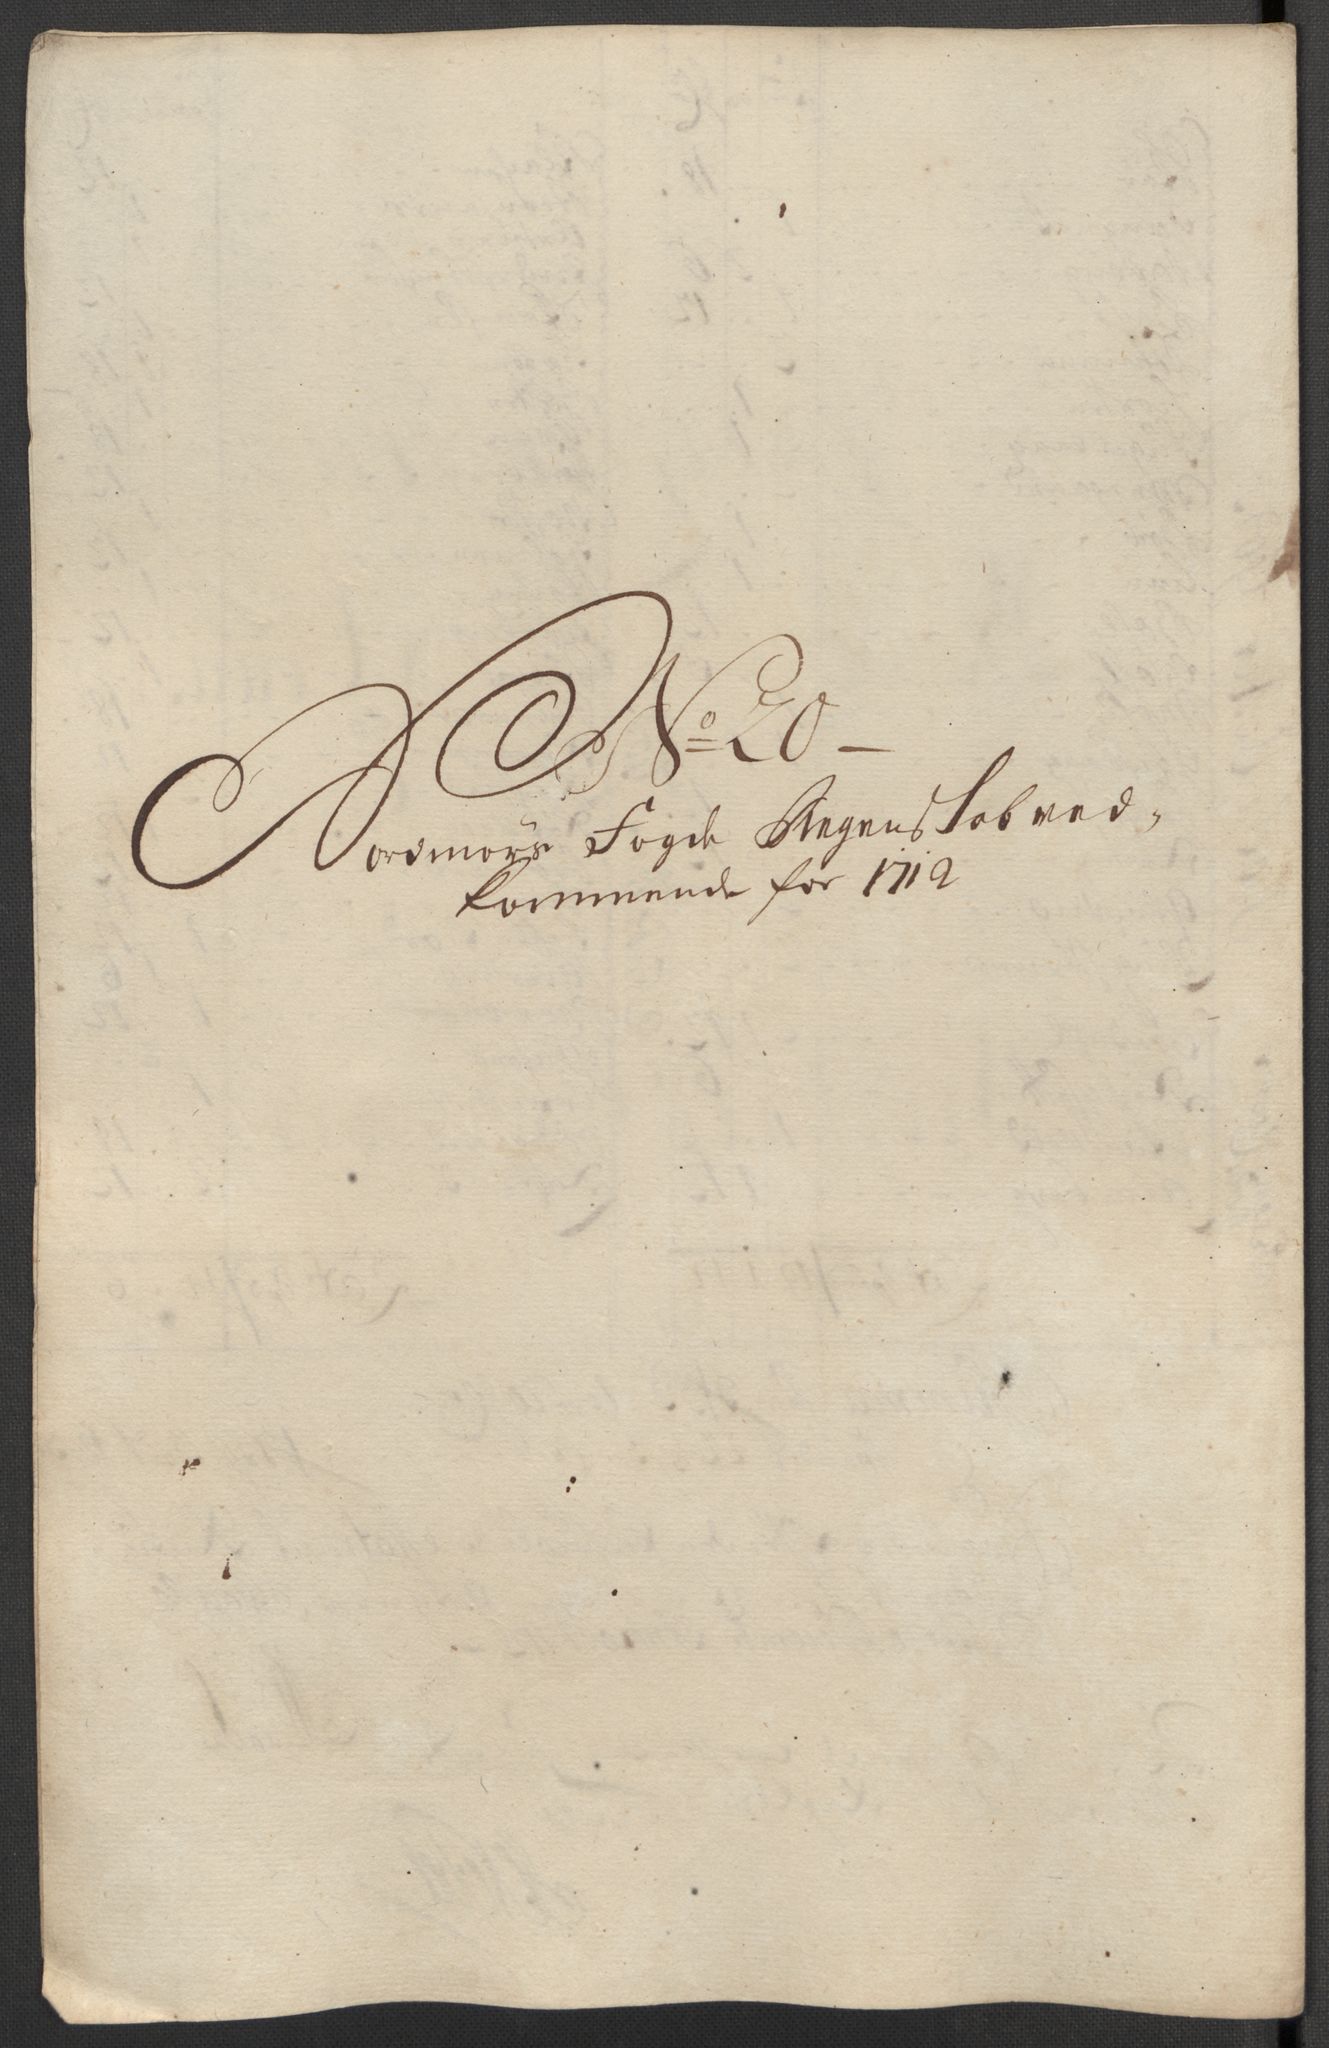 No 20 –
Nordmørs Fogde Regenskab ved,
kommende for 1712